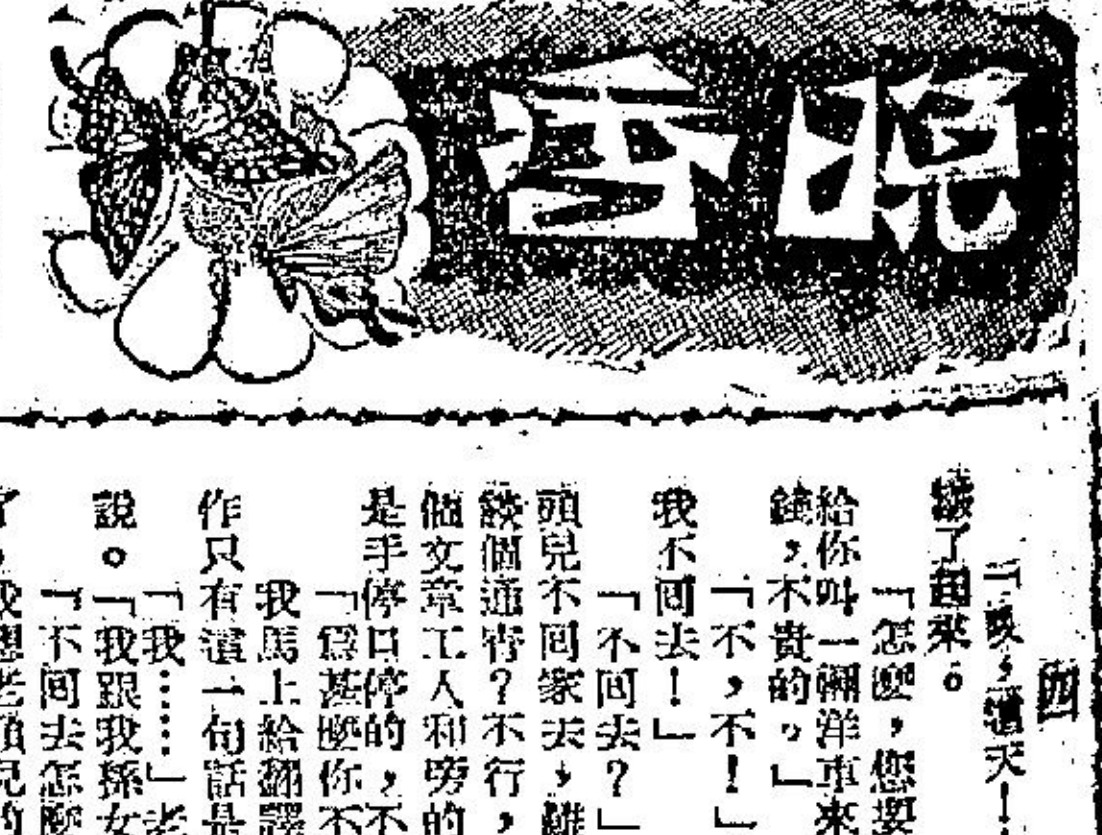 晚雪
四
「唉,這天!
嚷了起來。
「怎麼,您要
給你叫一輛洋車來
錢,不貴的。」
「不,不!」
我不回去!」
「不回去?」
頭兒不回家去,難
談個通宵?不行,
個文章工人和旁的
是手停口停的,不
「爲甚麼你不
我馬上給翻譯
作只有這一句話是
「我……」老
說。「我跟我孫女
「不回去怎麼
了。我想老頭兒的